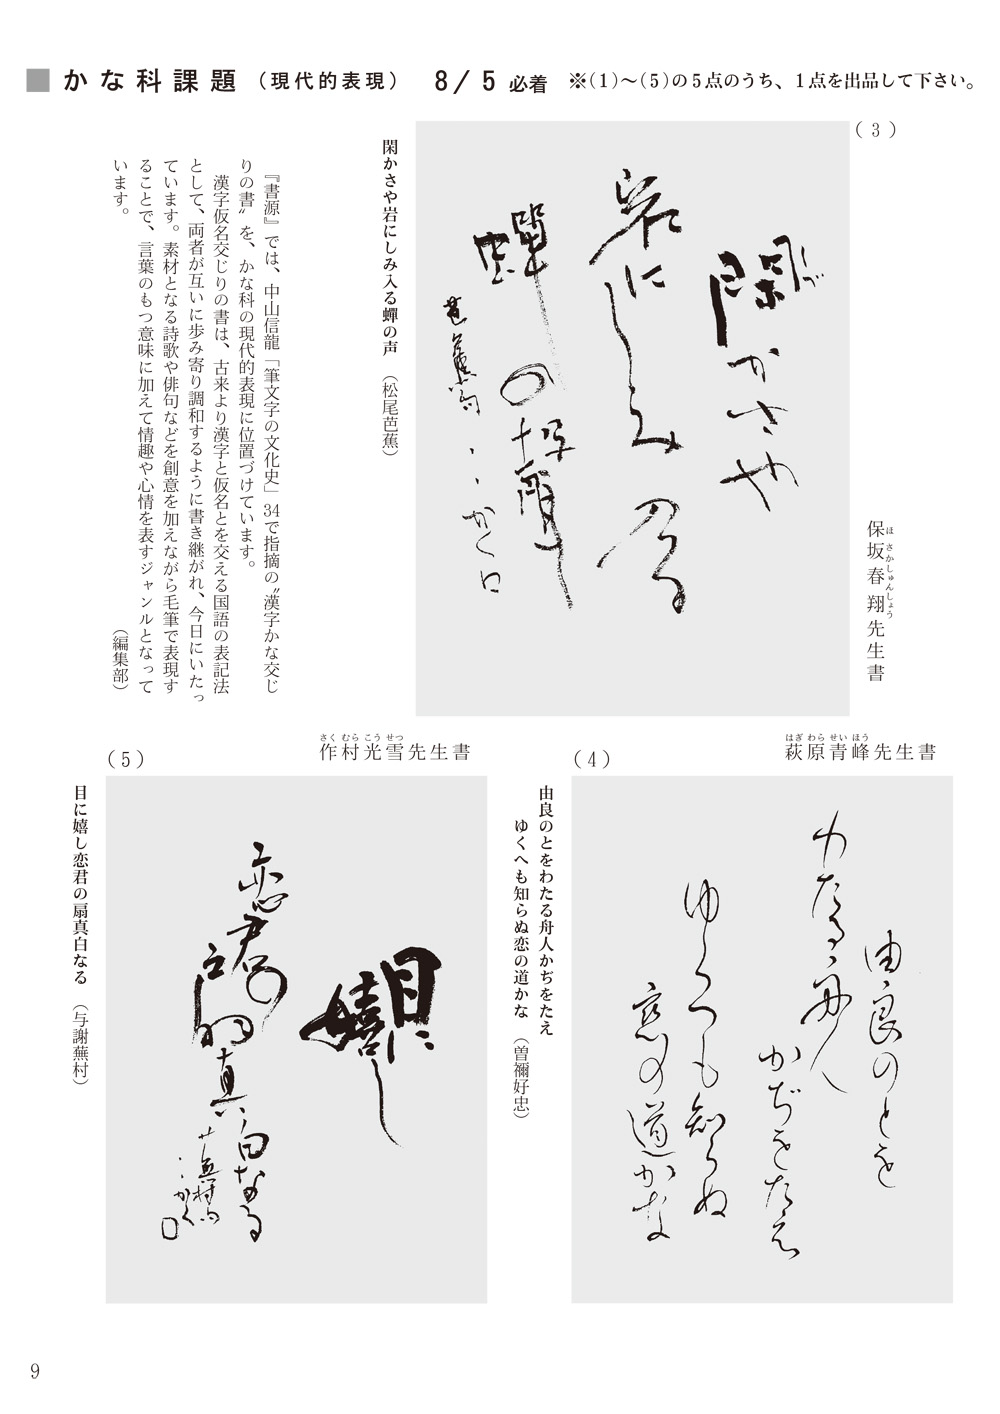 ■かな科課題（現代的表現）　8／5 必着　※（1）～（5）の5点のうち、1点を出品して下さい。
（3）
保坂春翔先生書
ほさかしゅんしょう
閑かさや
岩にしみ入る
蟬の声
芭蕉句 かく
閑かさや岩にしみ入る蟬の声　（松尾芭蕉）
『書源』では、中山信龍「筆文字の文化史」34で指摘の〝漢字かな交じ
りの書〟を、かな科の現代的表現に位置づけています。
漢字仮名交じりの書は、古来より漢字と仮名とを交える国語の表記法
として、両者が互いに歩み寄り調和するように書き継がれ、今日にいたっ
ています。素材となる詩歌や俳句などを創意を加えながら毛筆で表現す
ることで、言葉のもつ意味に加えて情趣や心情を表すジャンルとなって
います。
（編集部）
（4）
萩原青峰先生書
はぎわらせいほう
由良のとを
わたる舟人
かぢをたえ
ゆくへも知らぬ
恋の道かな
由良のとをわたる舟人かぢをたえ
ゆくへも知らぬ恋の道かな　（曽禰好忠）
（5）
作村光雪先生書
さくむらこうせつ
目に
嬉し
恋君の
扇真白なる
蕪村句
かく
目に嬉し恋君の扇真白なる　（与謝蕪村）
9